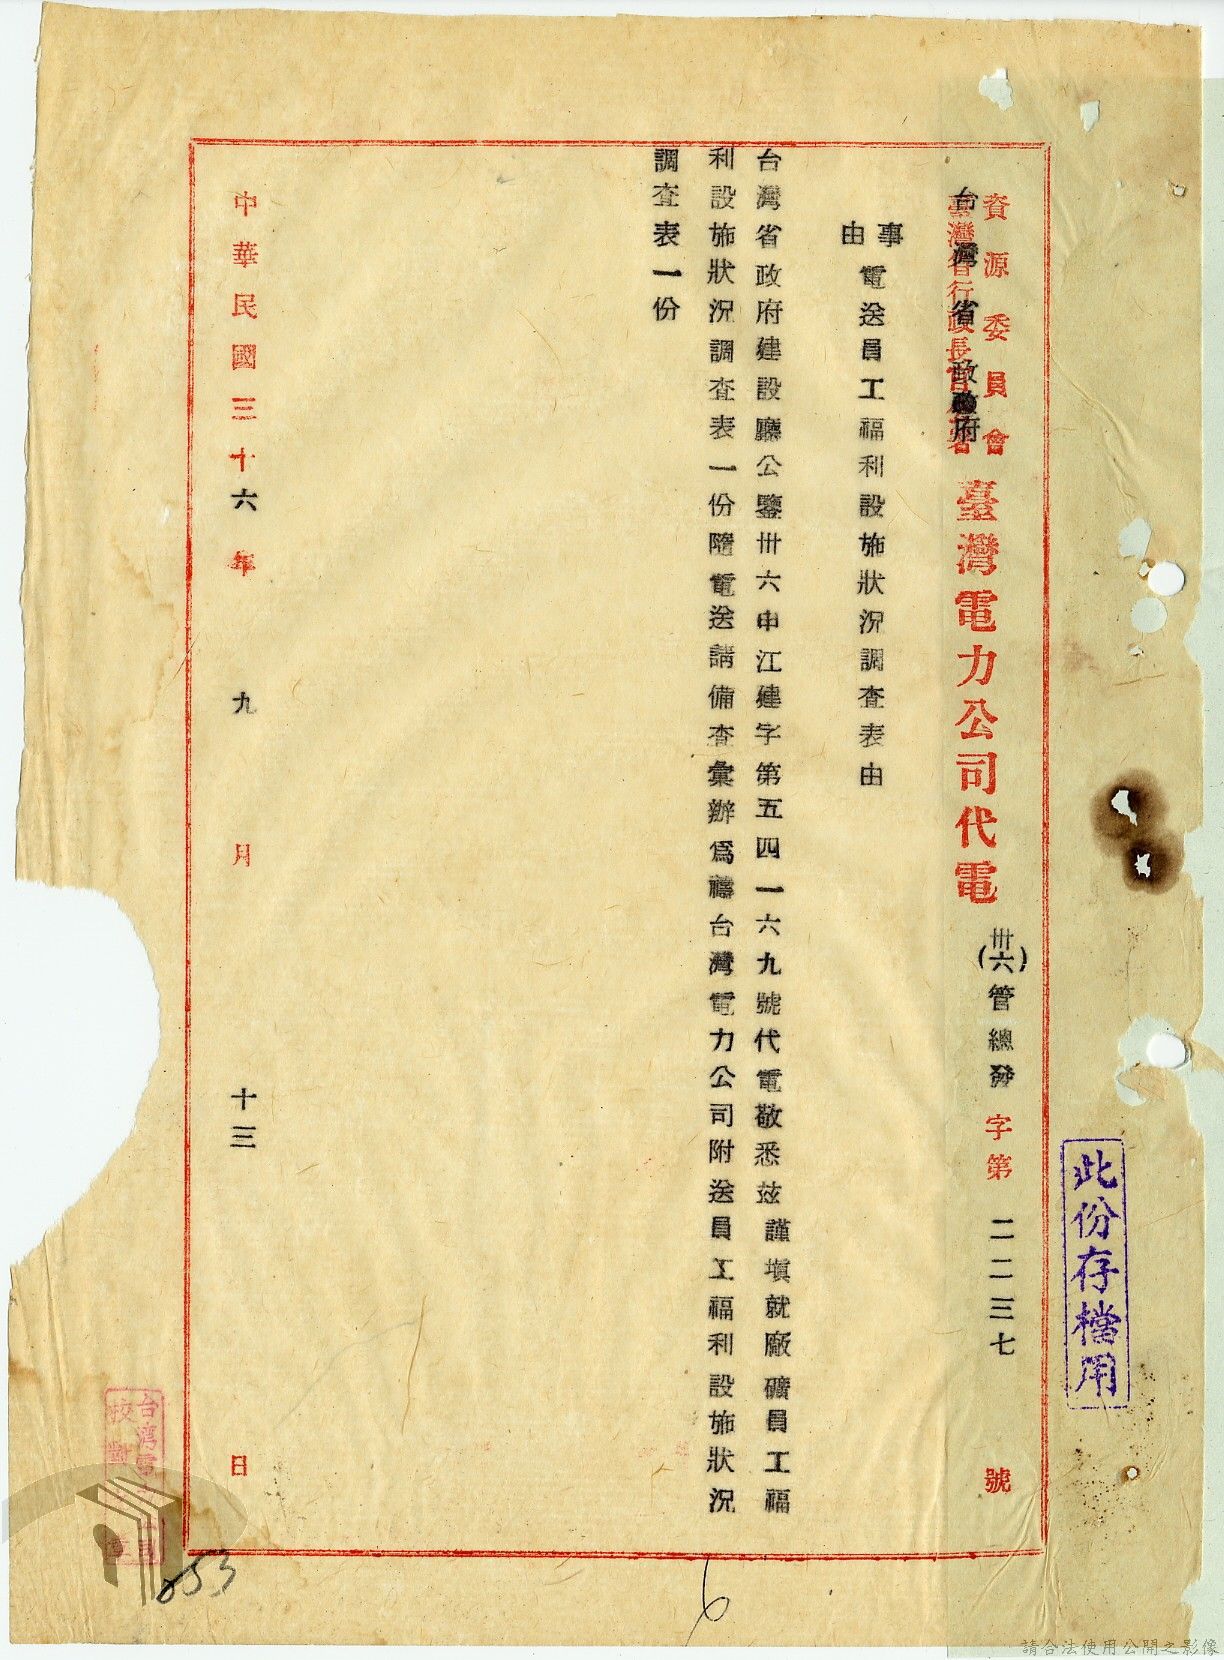 此份存檔用
資源委員會
臺灣省行政長官公署
台灣省政府
臺灣電力公司代電
(卅六)管總發字第二二三七號
事由
電送員工福利設施狀況調查表由
台灣省政府建設廳公鑒卅六申江建字第五四一六九號代電敬悉茲謹塡就廠礦員工福
利設施狀況調查表一份隨電送請備查彙辦爲禱台灣電力公司附送員工福利設施狀況
調查表一份
中華民國三十六年九月十三日
台湾電
校對
053
6
請合法使用公開之影像